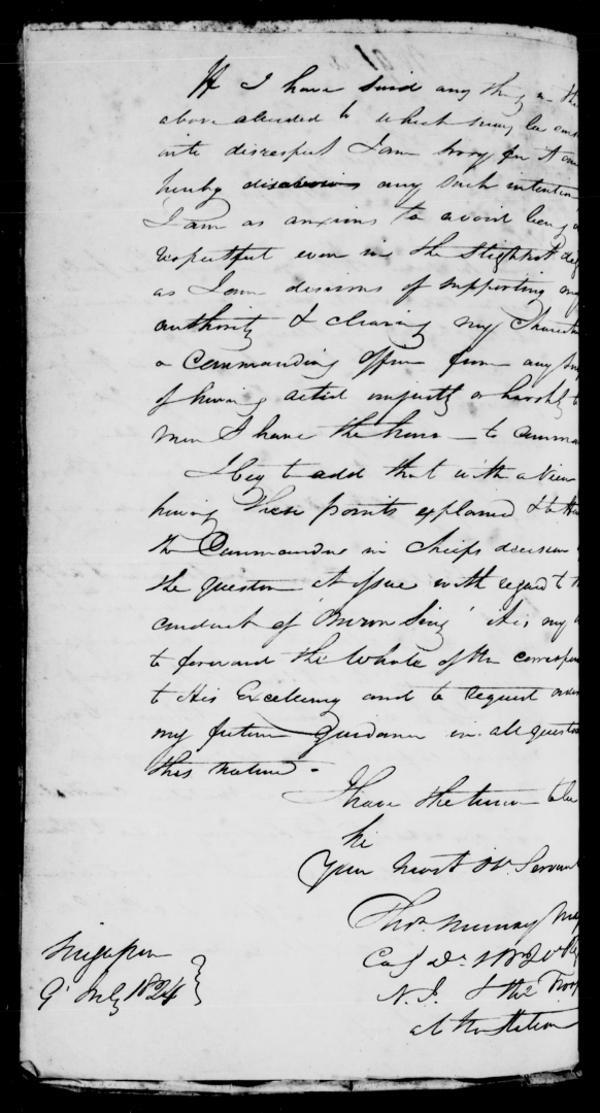 If I have said any thing in the
above alluded to which may be
into disrespect I am sorry for it
hereby any such intention
I am as anxious to avoid being
respectful even in the slightest deg
as I am desirous of supporting my
authority & clearing my Charact
a Commanding Officer from any
of having acted unjustly or harshly to
men I have the honor to comma
I beg to add that with a View
having these points explained & to
the Commander in Chiefs decision
the question at issue with regard to
conduct of Sing' it is my
to forward the whole of the correspon
to His Excellency and to request orders
my future Guidance in all question
this nature.
I have the honor to be
Your Most Obt Servant
Thos. Murray
N. I. & the Troop
at the Station
Singapore
9 July 1824